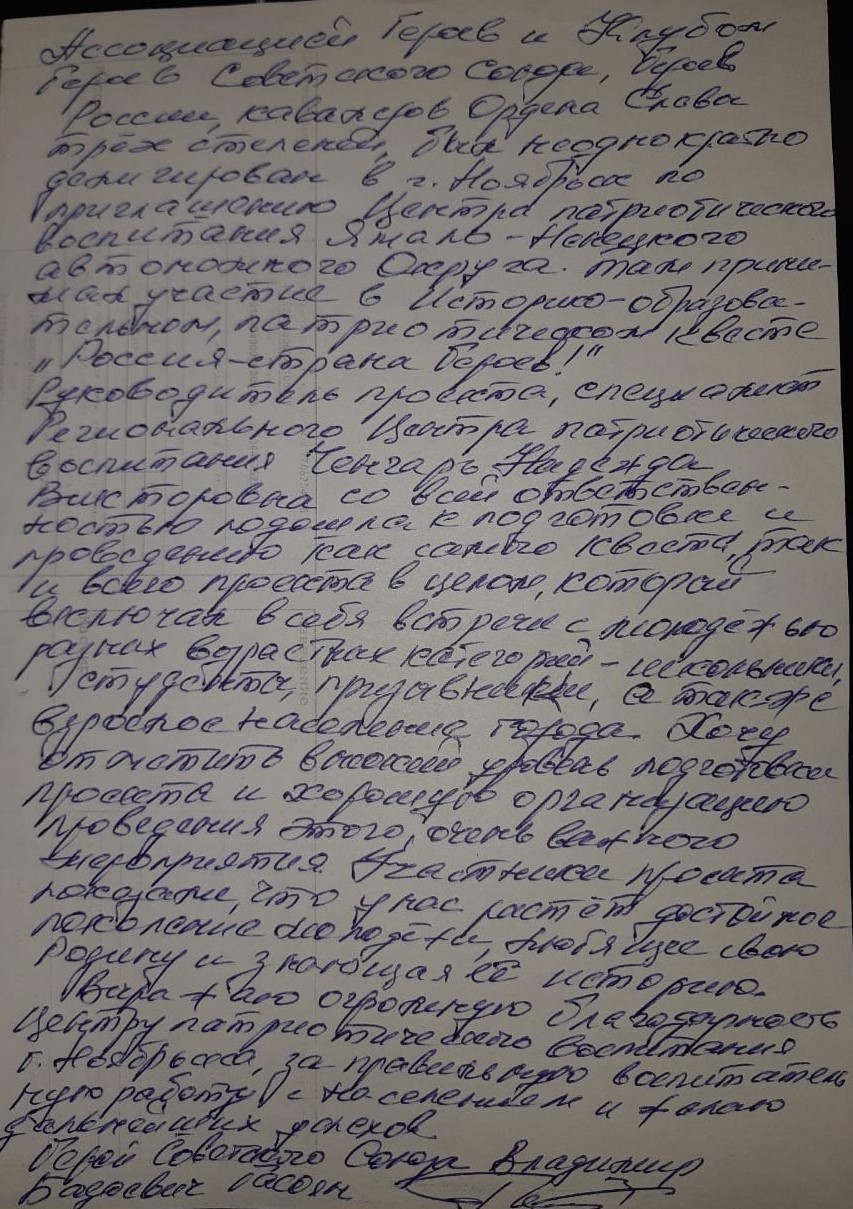 Ассоциацией Героев и Клубом
Героев Советского Союза, Героев
России, кавалеров Ордена Славы
трёх степеней, был неоднократно
делигирован в г. Ноябрьск по
приглашению Центра патриотического
воспитания Ямало-Ненецкого
автономного Округа. Там прини-
мал участие в Историко-образова-
тельном, патриотическом квесте
„Россия-страна Героев!"
Руководитель проекта, специалист
Регионального Центра патриотического
воспитания Ченгарь Надежда
Викторовна со всей ответствен-
ностью подошла к подготовке и
проведению как самого квеста, так
и всего проекта в целом, который
включал в себя встречи с молодёжью
разных возрастных категорий - школьники,
студенты, призывники, а также
взрослое население города. Хочу
отметить высокий уровень подготовки
проекта и хорошую организацию
проведения этого, очень важного
мероприятия. Участники проекта
показали, что у нас растёт достойное
поколение молодёжи, любящее свою
Родину и знающая её историю.
Выражаю огромную благодарность
Центру патриотического воспитания
г. Ноябрьска, за правильную воспитатель
ную работу с населением и желаю
дальнейших успехов
Герой Советского Союза Владимир
Бадоевич